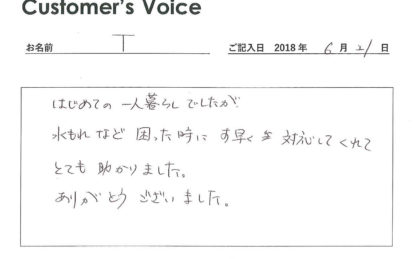 Customer's Voice
お名前 T ご記入日 2018年 6月21日
はじめての一人暮らしでしたが
水もれなど困った時にす早く対応してくれて
とても助かりました。
ありがとうございました。